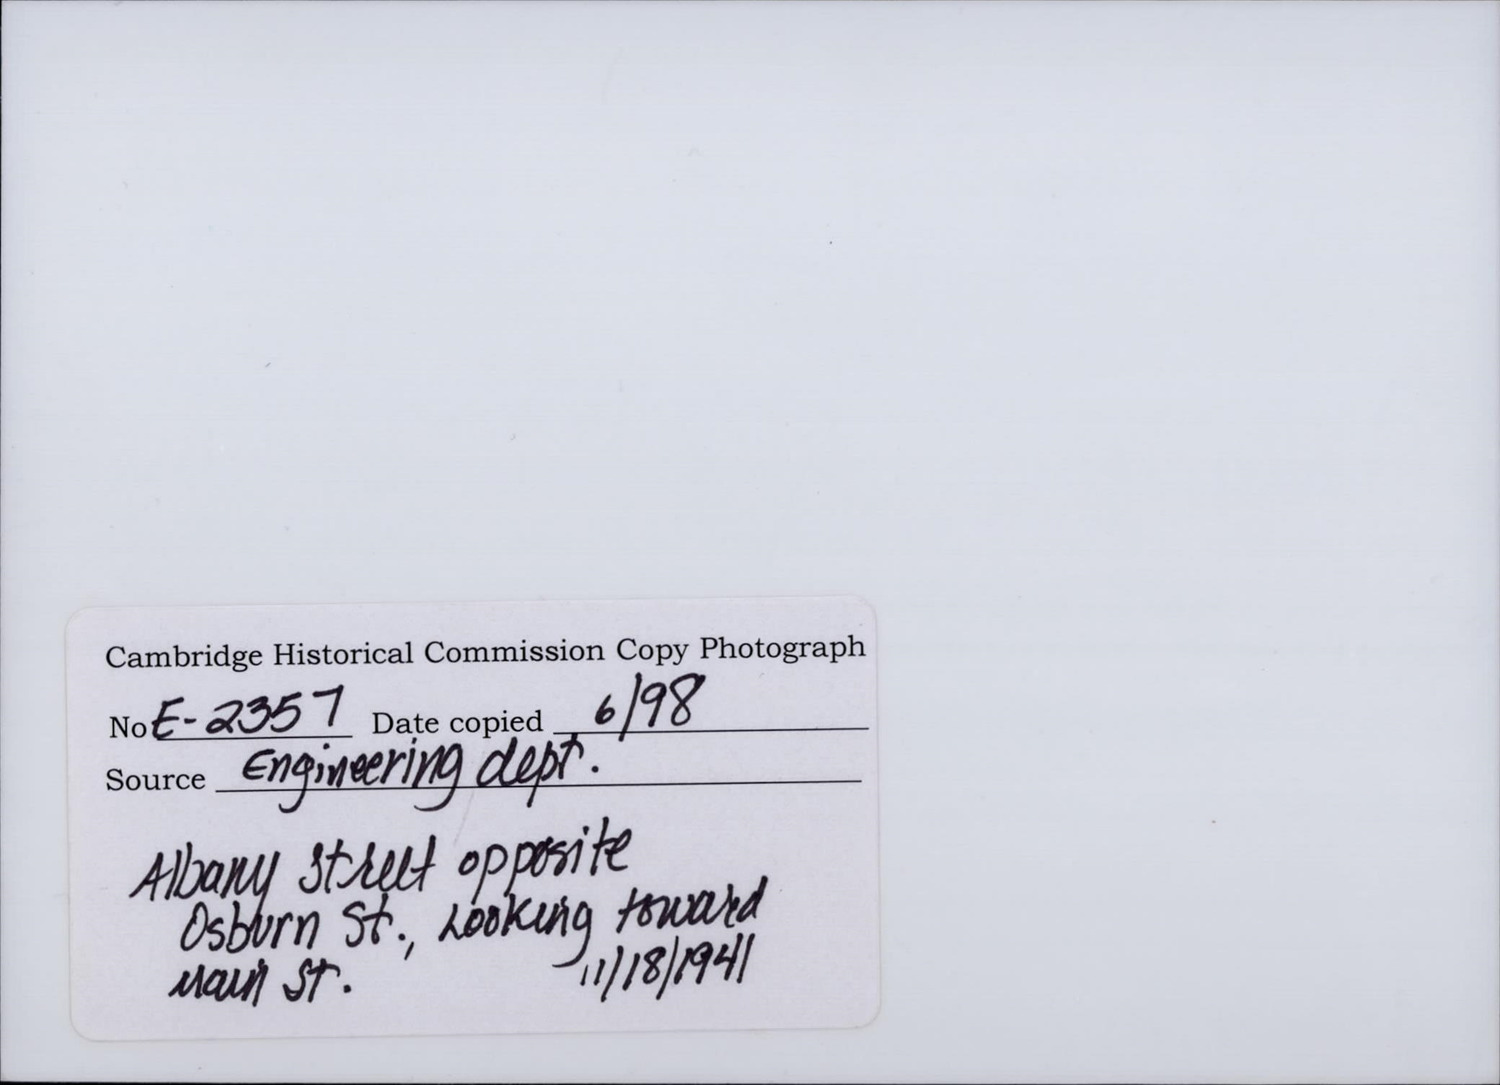 Cambridge Historical Commission Copy Photograph
No E-2357 Date copied 6/98
Source Engineering dept.
Albany Street opposite
Osburn St., Looking toward
Main St. 11/18/1941